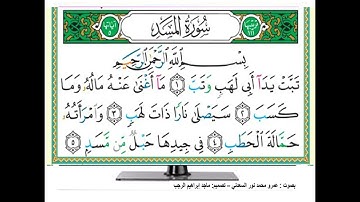 سُورَةُ المَسَدِ
بِسْمِ اللَّهِ الرَّحْمَٰنِ الرَّحِيمِ
تَبَّتْ يَدَآ أَبِي لَهَبٍ وَتَبَّ ١ مَآ أَغْنَىٰ عَنْهُ مَالُهُۥ وَمَا
كَسَبَ ٢ سَيَصْلَىٰ نَارًا ذَاتَ لَهَبٍ ٣ وَٱمْرَأَتُهُۥ
حَمَّالَةَ ٱلْحَطَبِ ٤ فِي جِيدِهَا حَبْلٌ مِّن مَّسَدٍۭ ٥
بصوت : عمرو محمد نور السعدني – تصميم: ماجد ابراهيم الرجب